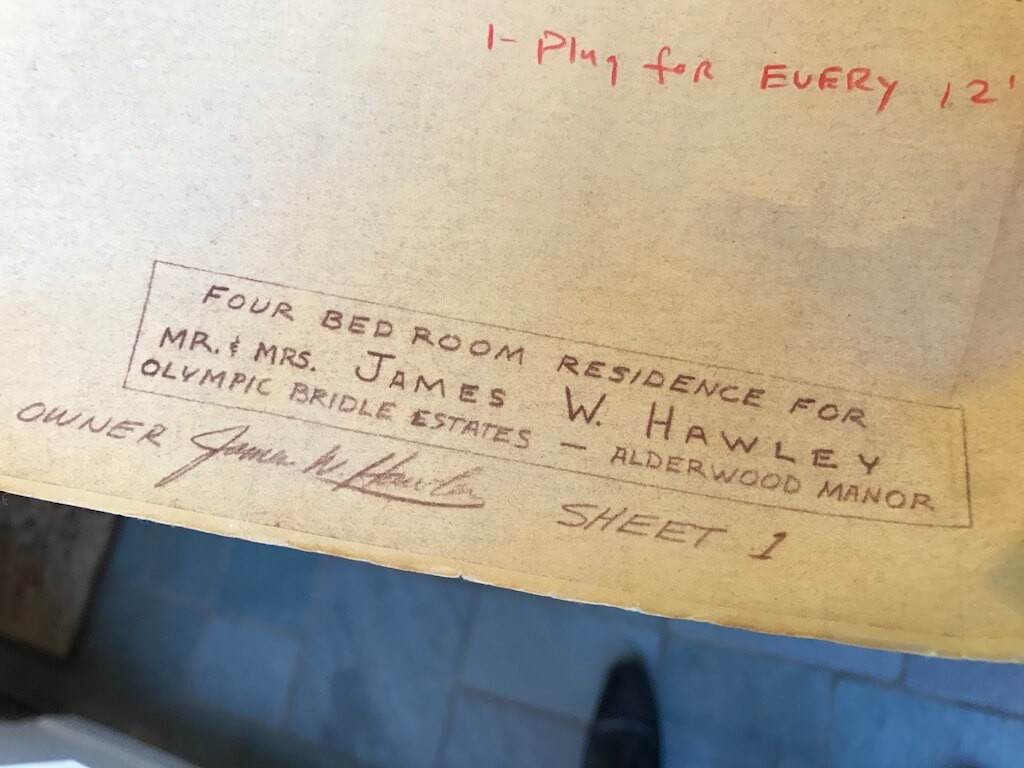 1- Plug foR EVERY 12'
FOUR BED ROOM RESIDENCE FOR
MR. & MRS. JAMES W. HAWLEY
OLYMPIC BRIDLE ESTATES — ALDERWOOD MANOR
OWNER James W. Hawley
SHEET 1